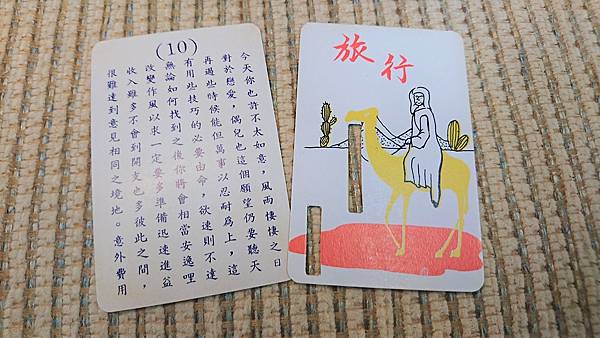 (10)
今天你也許不太如意，風雨悽悽之日
對於戀愛，偶兒也這個願望仍要聽天
再過些時候能但萬事以忍耐為上，這
有用些技巧的必要由命，欲速則不達
無論如何找到之後你將會相當安逸哩
改變作風以求一定要多準備迅速進益
收入雖多不會到開支也多彼此之間，
很難達到意見相同之境地。意外費用
旅行